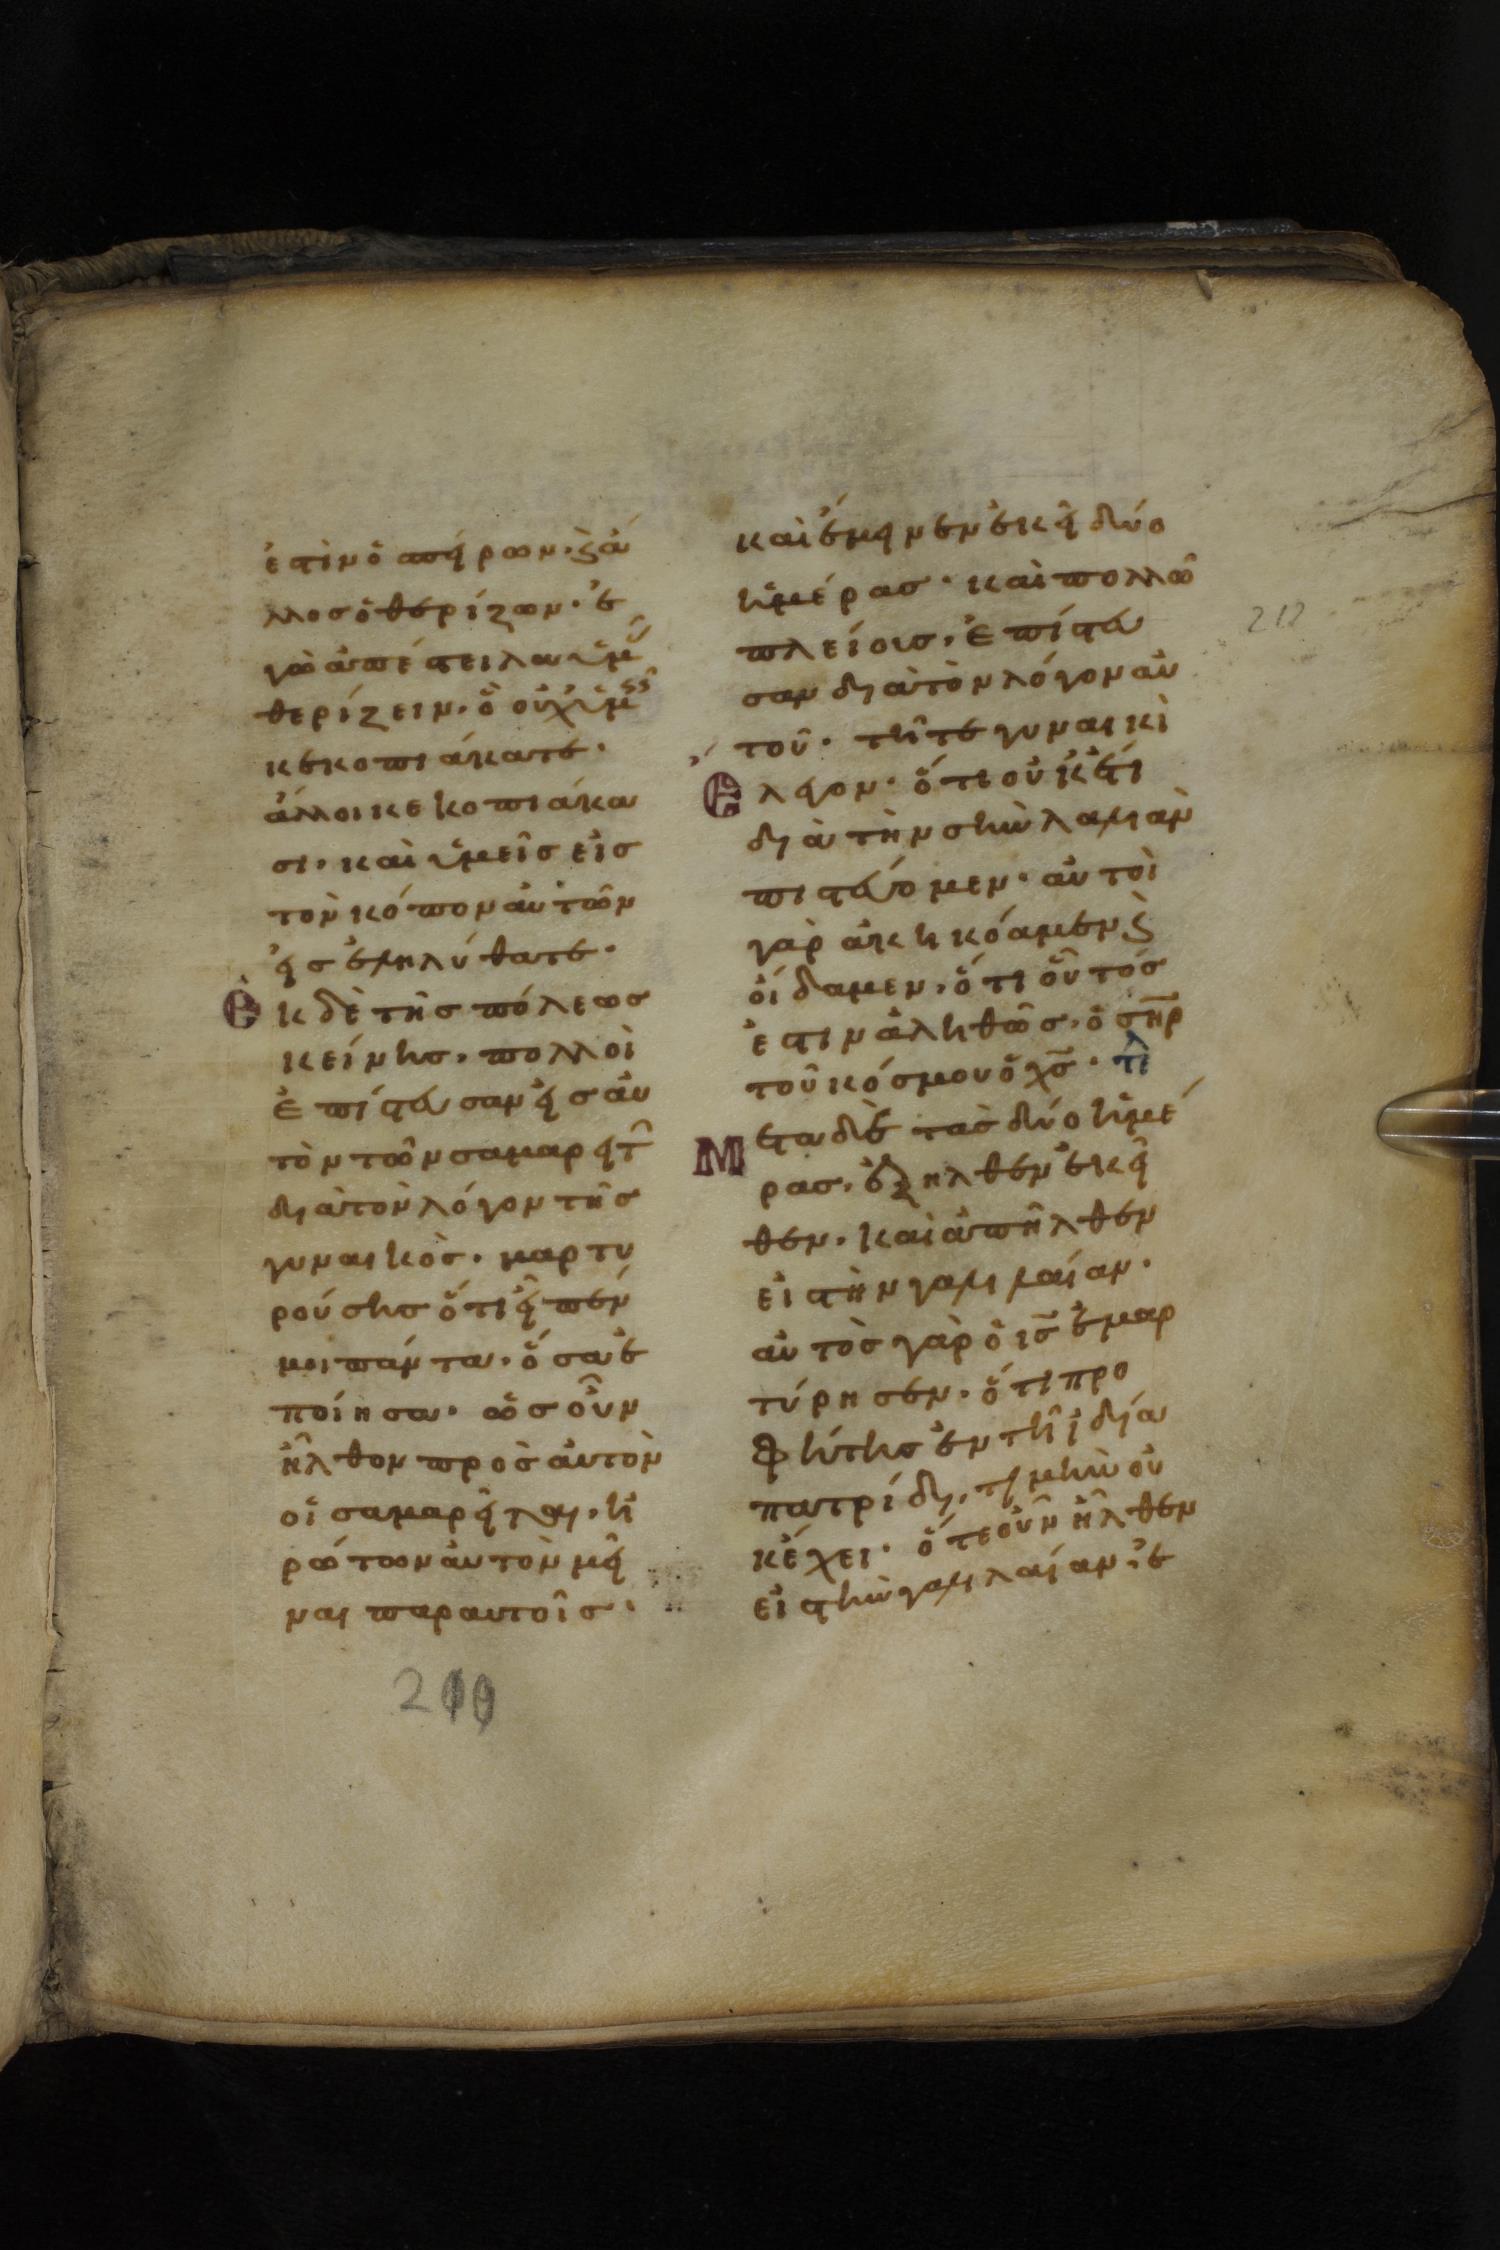 ἐστὶν ὁ σπείρων· καὶ ἄ
λλος ὁ θερίζων· ἐ
γὼ ἀπέστειλα ὑμ(ᾶς)
θερίζειν· ὃ οὐχ ὑμεῖς
κεκοπιάκατε·
ἄλλοι κεκοπιάκα
σι· καὶ ὑμεῖς εἰς
τὸν κόπον αὐτῶν
εἰσεληλύθατε·
Ἐκ δὲ τῆς πόλεως
κείνης· πολλοὶ
ἐπίστευσαν εἰς αὐ
τὸν τῶν σαμαρειτ
διὰ τὸν λόγον τῆς
γυναικὸς· μαρτυ
ρούσης ὅτι εἶπέν
μοι πάντα· ὅσα ἐ
ποίησα· ὡς οὖν
ἦλθον πρὸς αὐτὸν
οἱ σαμαρεῖται· ἠ
ρώτων αὐτὸν μεῖ
ναι παραυτοῖς·
καὶ ἔμεινεν ἐκεῖ δύο
ἡμέρας· καὶ πολλῶ
πλείους· ἐπίστευ
σαν διὰ τὸν λόγον αὐ
τοῦ· τῆ τε γυναικὶ
Ἔλεγον· ὅτι οὐκέτι
διὰ τὴν σὴν λαλιὰν
πιστεύομεν· αὐτοὶ
γὰρ ἀκηκόαμεν καὶ
οἴδαμεν· ὅτι οὗτός
ἐστιν ἀληθῶς· ὁ σηρ
τοῦ κόσμου ὁ χς· τλ
Μετα δὲ τὰς δύο ἡμέ
ρας· ἐξῆλθεν ἐκεῖ
θεν· καὶ ἀπῆλθεν
εἰς τὴν γαλιλαίαν·
αὐτὸς γὰρ ὁ ις ἐμαρ
τύρησεν· ὅτι προ
φήτης ἐν τῆ ἰδία
πατρίδι· τιμὴν οὐ
κ ἔχει· ὅτε οὖν ἦλθεν
εἰς τὴν γαλιλαίαν· ἐ
212
209